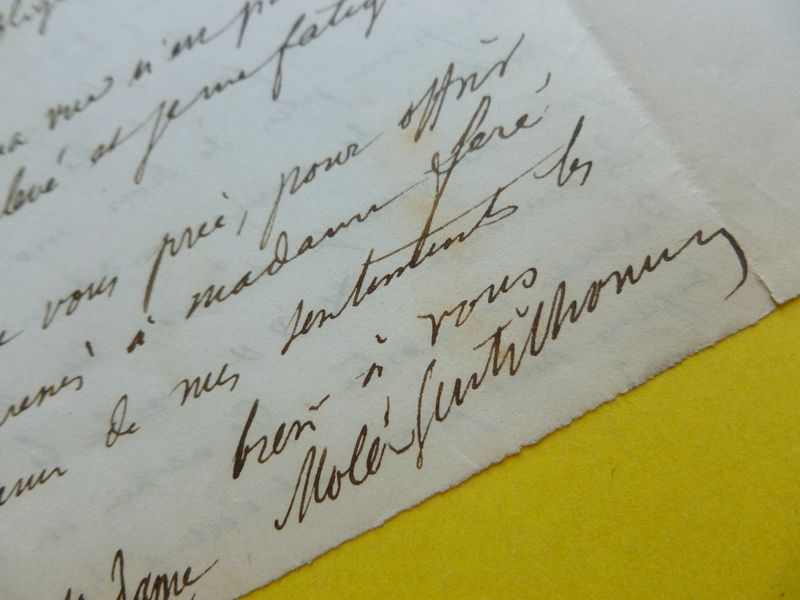 ma vue n'en p
levé et je me fatig
vous prie, pour offrir
à madame feré,
de mes sentiments les
bien à vous
Molé Gentilhomme
Dame